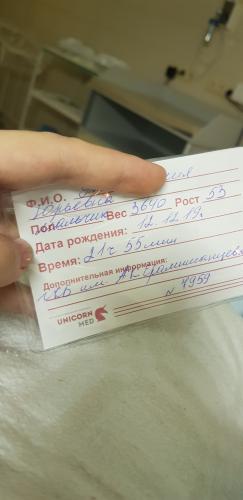 Ф.И.О.
Юрьевна
Пол мальчик Вес 3640 Рост 53
Дата рождения: 12.12.19г.
Время: 21ч 55мин
Дополнительная информация:
ГКБ им.
N 4959
UNICORN
MED